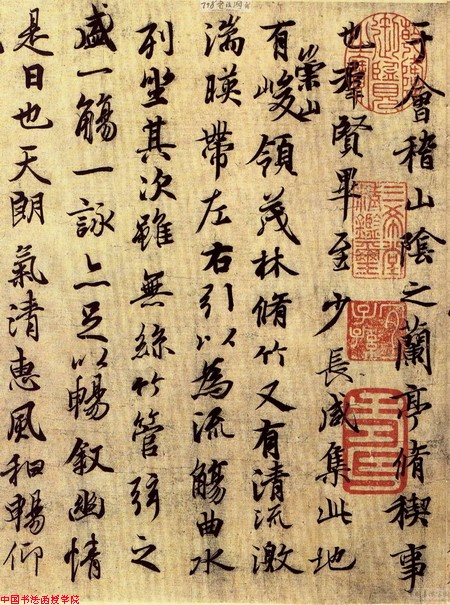 于會稽山陰之蘭亭脩稧事
也羣賢畢至少長咸集此地
有崇山峻領茂林脩竹又有清流激
湍暎帶左右引以為流觴曲水
列坐其次雖無絲竹管弦之
盛一觴一詠亦足以暢敘幽情
是日也天朗氣清惠風和暢仰
三希堂精鑑璽
宜子孫
中国书法函授学院